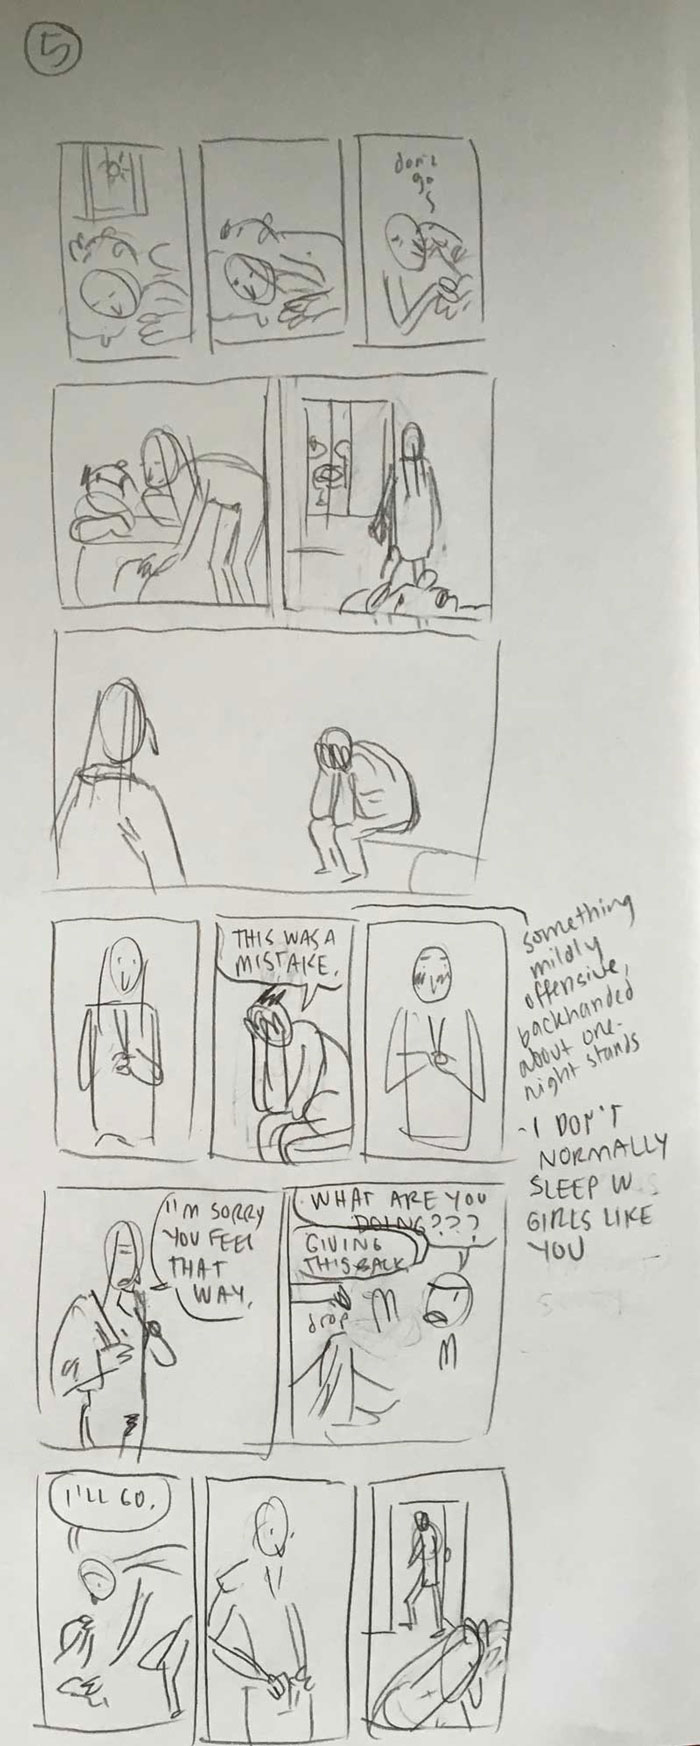 5
don't
go
THIS WAS A
MISTAKE.
something
mildly
offensive,
backhanded
about one-
night stands
- I DON'T
NORMALLY
SLEEP W
GIRLS LIKE
YOU
I'M SORRY
YOU FEEL
THAT
WAY.
WHAT ARE YOU
DOING???
GIVING
THIS BACK.
drop
I'LL GO.